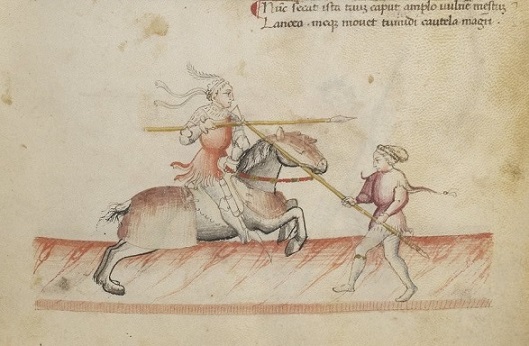 Nūc secat ista tuuz caput amplo uulnē mestuz
Lancea. meqz mouet tumidi cautela magrī.